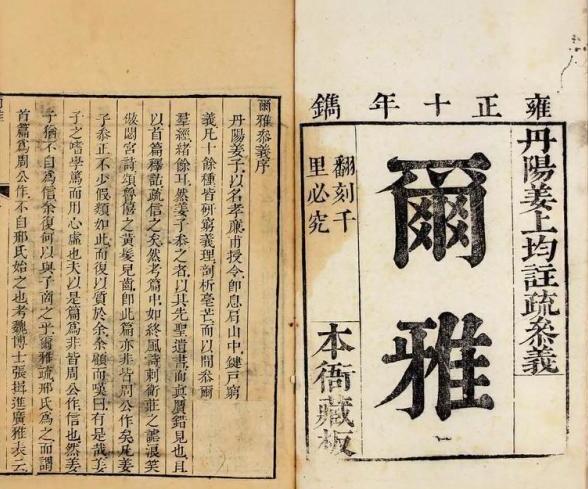 雍正十年鐫
丹陽姜上均註疏叅義
爾雅
翻刻千
里必究
本衙藏板
爾雅叅義序
丹陽姜子以名孝廉甫授令即息肩山中鍵戸窮
義凡十餘種皆研窮義理剖析毫芒而以間叅爾
羣經緒餘耳然姜子叅之者以其先聖遺書而真贗錯見也且
以首篇釋詁疏信之矣然考篇中如終風詩刺衛莊之謔浪笑
傲閟宮詩頌魯僖之黃髮兒齒即此篇亦非皆周公作矣凡姜
子叅正不少假類如此而復以質於余余顧而嘆曰有是哉姜
子之嗜學篤而用心虛也夫以是篇為非皆周公作信也然姜
子猶不自為信余復何以與子商之乎爾雅疏邢氏為之而謂
首篇為周公作不自邢氏始之也考魏博士張揖進廣雅表云